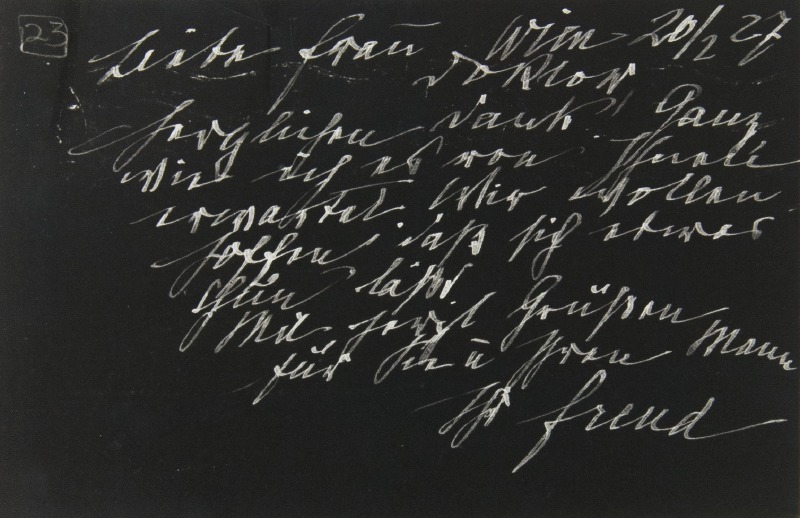 23
Wien 20/2 27
Liebe Frau
Doktor
Herzlichen Dank! Ganz
wie ich es von Ihnen
erwartet. Wir wollen
hoffen, daß sich etwas
thun läßt.
Mit herzl Grüßen
für Sie u Ihren Mann
Ihr Freud